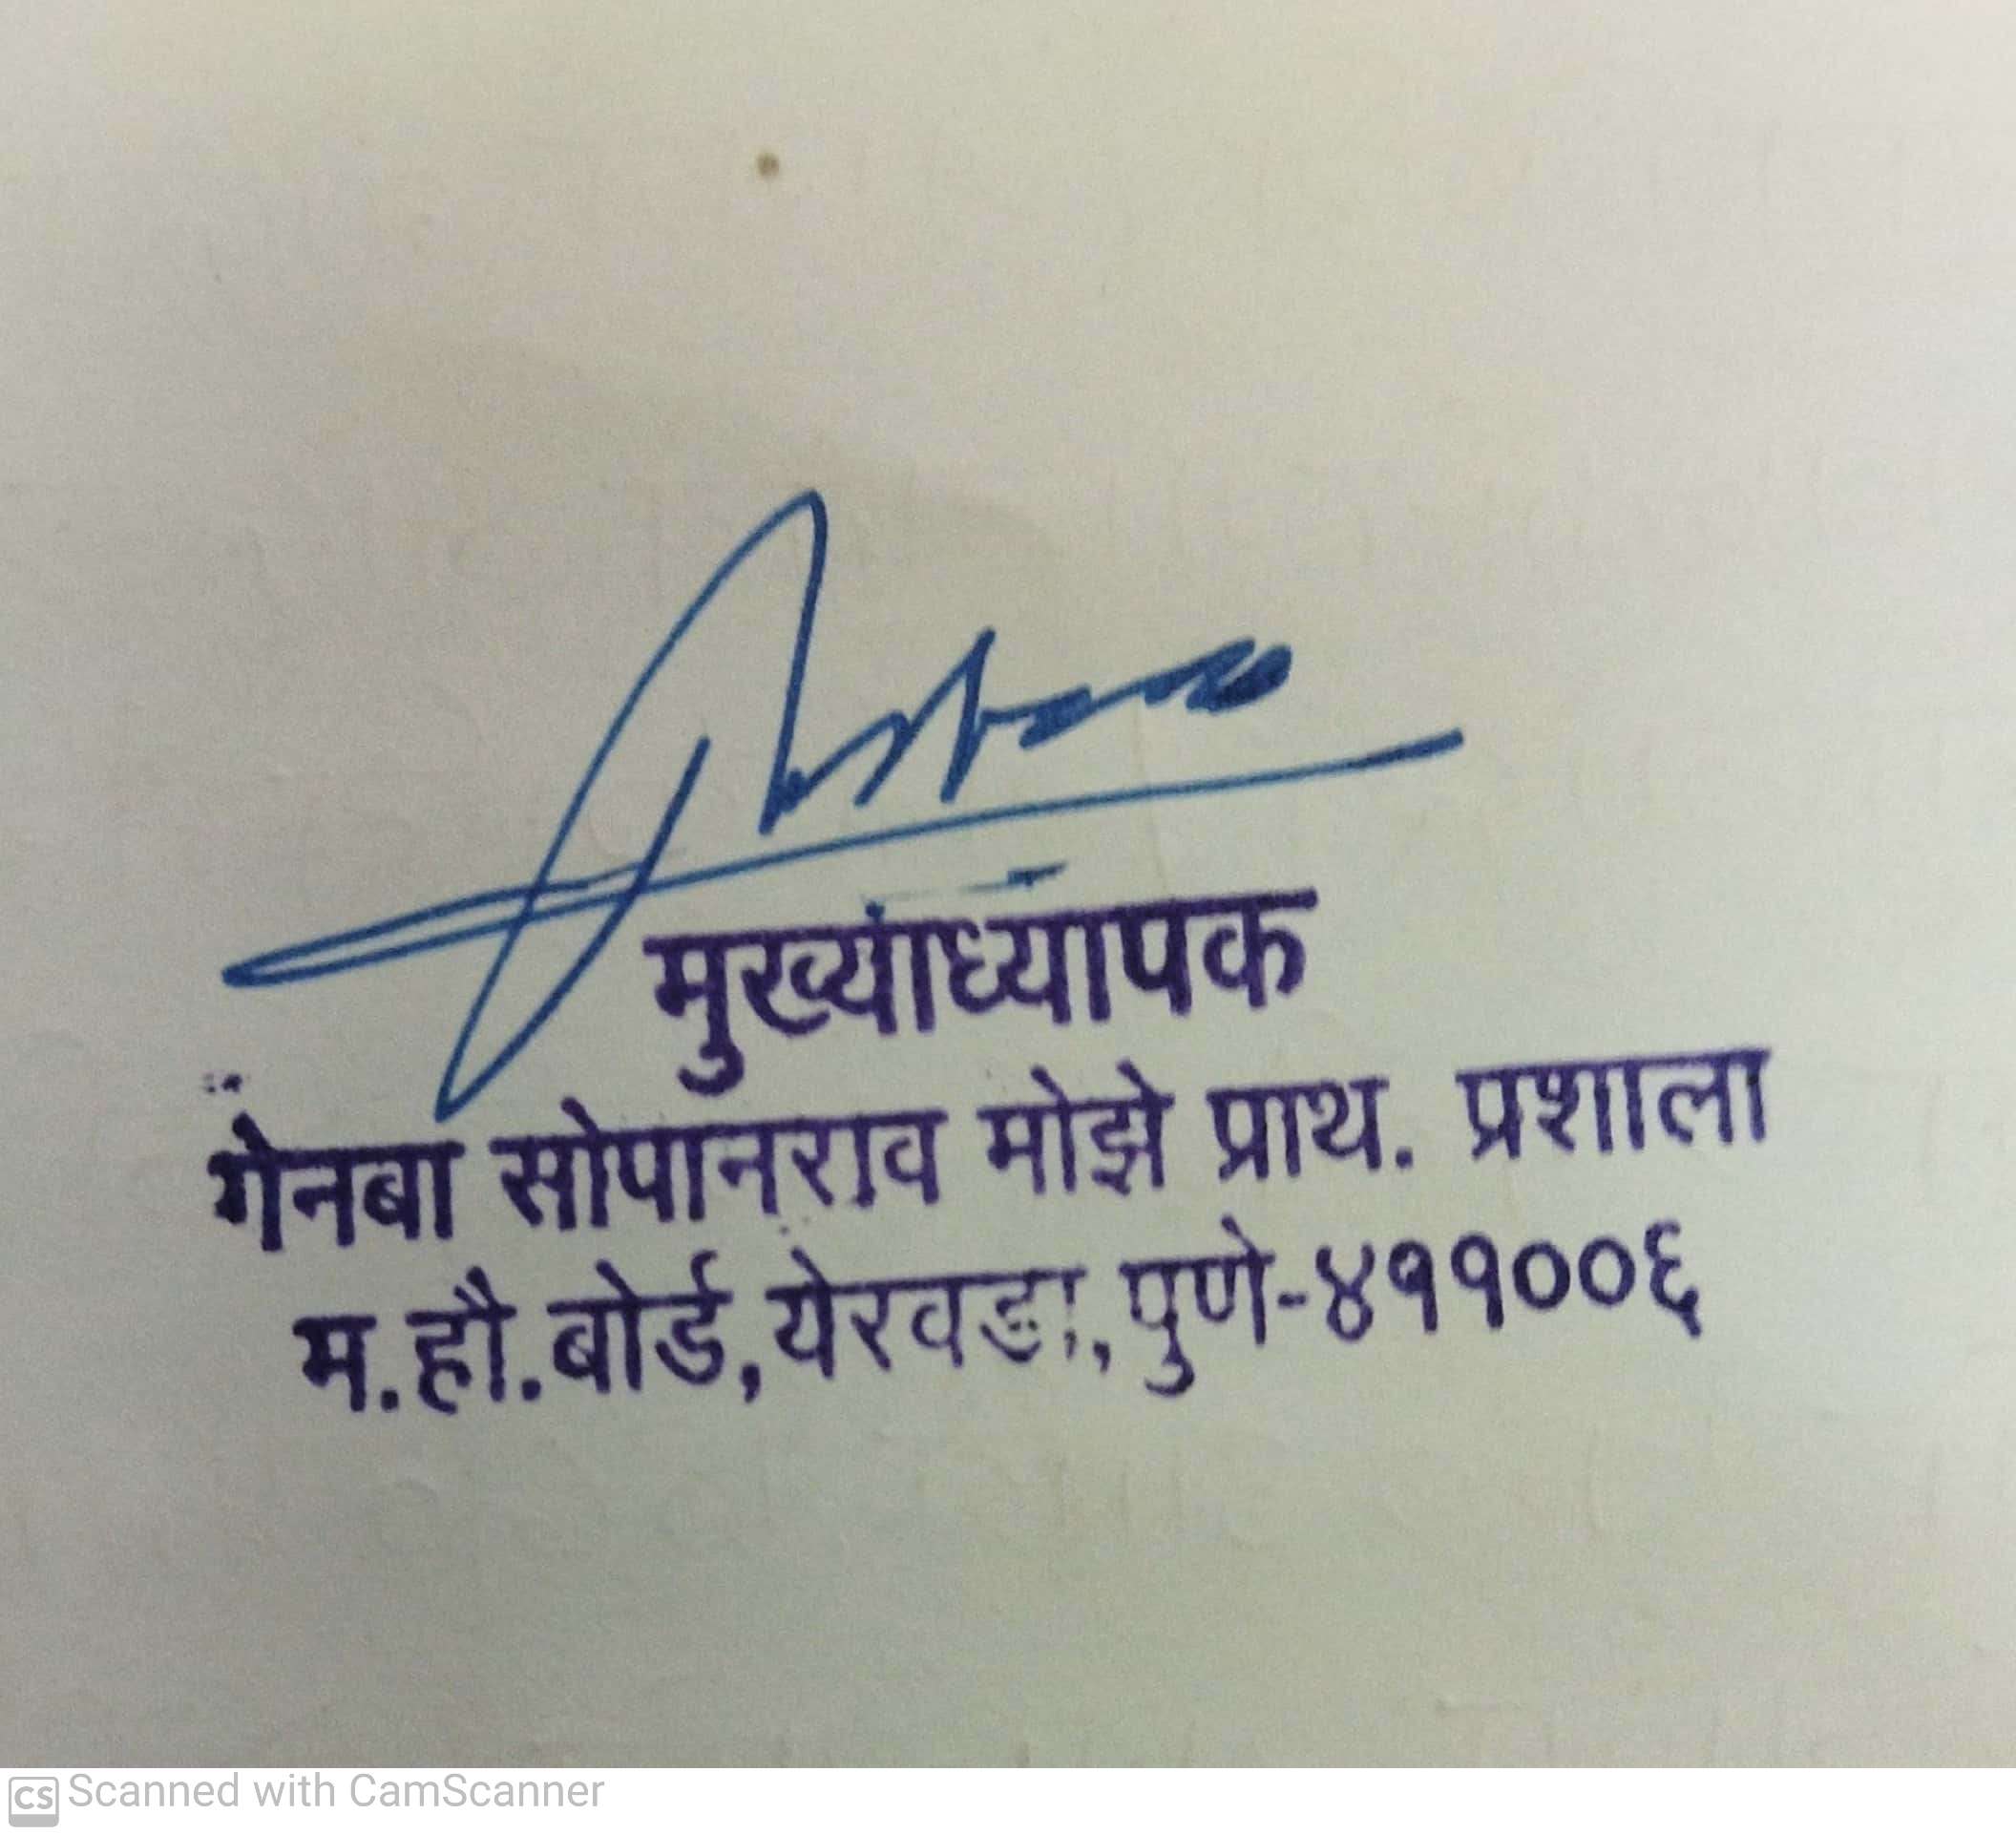 मुख्याध्यापक
गेनबा सोपानराव मोझे प्राथ. प्रशाला
म.हौ.बोर्ड,येरवडा,पुणे-४११००६
CS Scanned with CamScanner